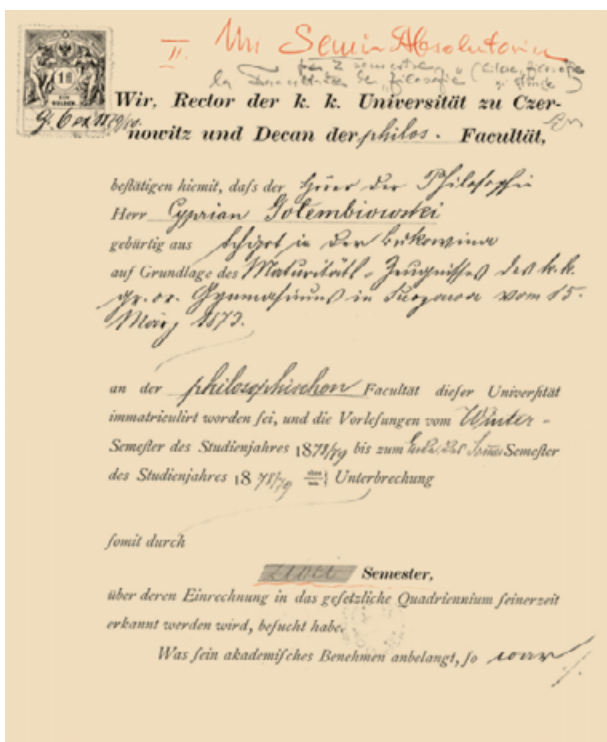 II. Un Semi-Absolutoriu
la Facultatea de filosofie
18
EIN
GULDEN
Wir, Rector der k. k. Universität zu Czer-
nowitz und Decan der philos. Facultät,
beſtätigen hiemit, daſs der Hörer der Philoſophie
Herr Cyprian Gołembiowski
gebürtig aus in der Bukowina
auf Grundlage des Maturitäts-Zeugniſſes des k. k.
gr. or. Gymnaſiums in Suczawa vom 15.
März 1873.
an der philoſophiſchen Facultät dieſer Univerſität
immatriculirt worden ſei, und die Vorleſungen vom Winter-
Semeſter des Studienjahres 1878/79 bis zum Ende des Semeſter
des Studienjahres 1878/79 Unterbrechung
ſomit durch
zwei Semester,
über deren Einrechnung in das geſetzliche Quadriennium ſeinerzeit
erkannt werden wird, beſucht habe.
Was ſein akademiſches Benehmen anbelangt, ſo war